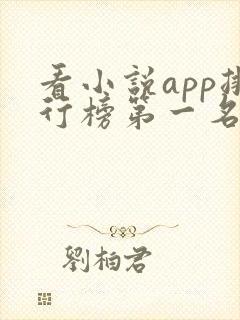 看小説app排
行榜第一名
劉柏君